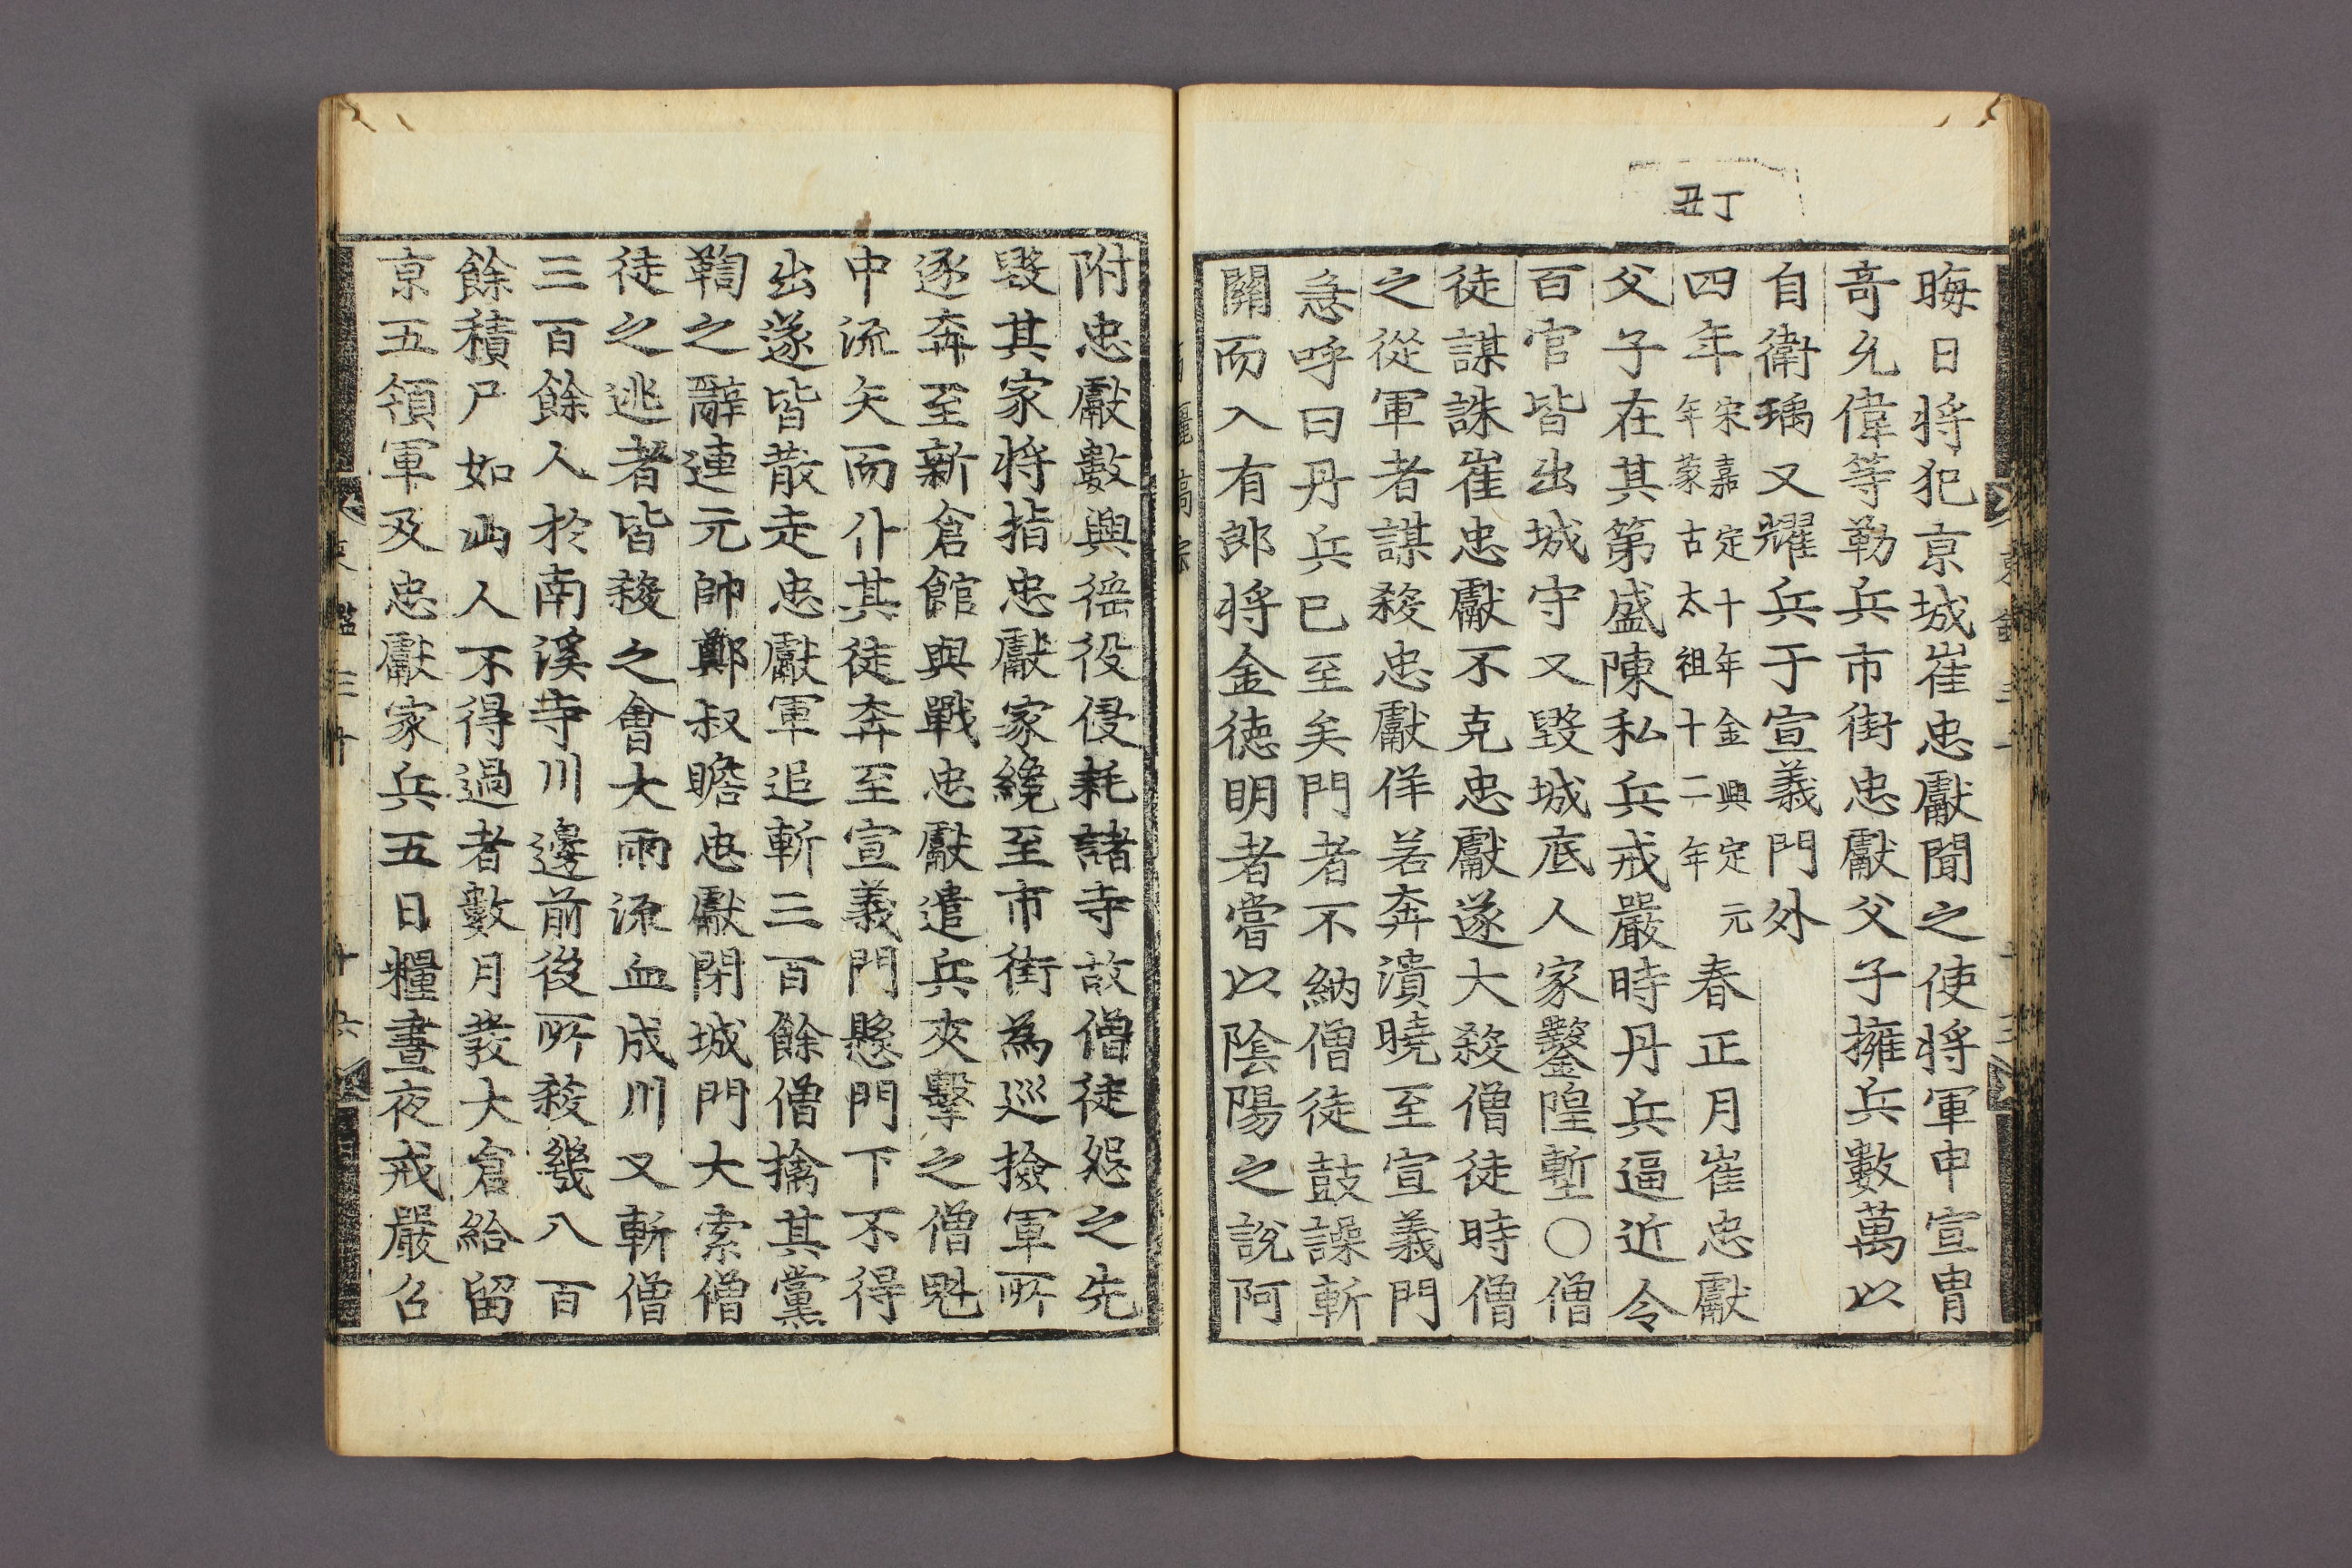 丁丑
晦日將犯京城崔忠獻聞之使將軍申宣冑
奇允偉等勒兵市街忠獻父子擁兵數萬以
自衛瑀又耀兵于宣義門外
四年宋嘉定十年金興定元年蒙古太祖十二年春正月崔忠獻
父子在其第盛陳私兵戒嚴時丹兵逼近令
百官皆出城守又毀城底人家鑿隍塹○僧
徒謀誅崔忠獻不克忠獻遂大殺僧徒時僧
之從軍者謀殺忠獻佯若奔潰曉至宣義門
急呼曰丹兵已至矣門者不納僧徒鼓譟斬
關而入有郎將金德明者嘗以陰陽之說阿
附忠獻數興徭役侵耗諸寺故僧徒怨之先
毀其家將指忠獻家纔至市街爲巡撿軍所
逐奔至新倉館與戰忠獻遣兵夾擊之僧魁
中流矢而仆其徒奔至宣義門懸門下不得
出遂皆散走忠獻軍追斬三百餘僧擒其黨
鞫之辭連元帥鄭叔瞻忠獻閉城門大索僧
徒之逃者皆殺之會大雨流血成川又斬僧
三百餘人於南溪寺川邊前後所殺幾八百
餘積尸如山人不得過者數月發大倉給留
京五領軍及忠獻家兵五日糧晝夜戒嚴召